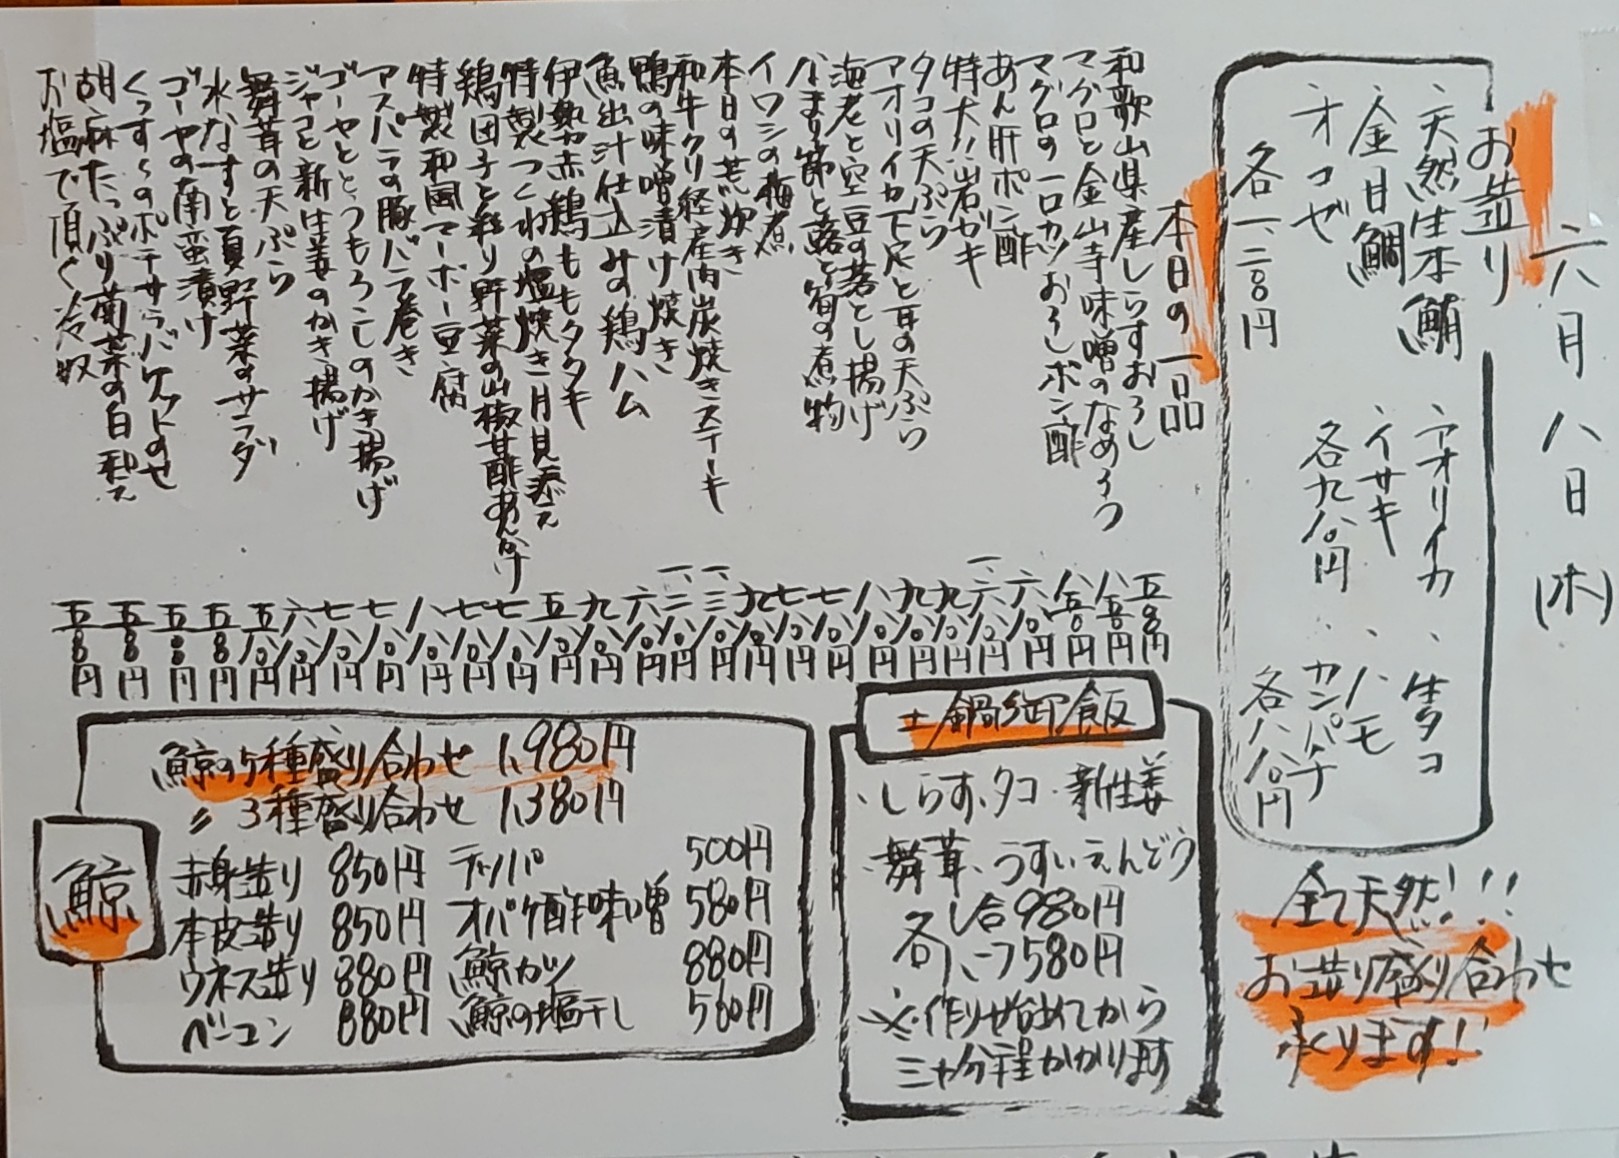 六月八日(木)
お造り
・天然生本鮪
・金目鯛
・オコゼ
各一、二〇〇円
・アオリイカ
・イサキ
各九八〇円
・生タコ
・ハモ
・カンパチ
各八八〇円
全て天然!!!
お造り盛り合わせ
承ります!!
本日の一品
和歌山県産しらすおろし 五八〇円
マグロと金山寺味噌のなめろう 八五〇円
マグロの一口カツおろしポン酢 八五〇円
あん肝ポン酢 六八〇円
特大!!岩ガキ 一、六八〇円
タコの天ぷら 九八〇円
アオリイカ下足と耳の天ぷら 九八〇円
海老と空豆の落とし揚げ 八八〇円
なまり節と蕗と筍の煮物 七八〇円
イワシの梅煮 七八〇円
本日の荒炊き 九八〇円
和牛クリ経産肉炭焼きステーキ 一、三八〇円
鴨の味噌漬け焼き 一、二八〇円
魚出汁仕込みの鶏ハム 六八〇円
伊勢赤鶏ももタタキ 九八〇円
特製つくねの塩焼き月見添え 五八〇円
鶏団子と彩り野菜の山椒甘酢あんかけ 七八〇円
特製和風マーボー豆腐 七八〇円
アスパラの豚バラ巻き 八八〇円
ゴーヤととうもろこしのかき揚げ 七八〇円
ジャコと新生姜のかき揚げ 七八〇円
舞茸の天ぷら 六八〇円
水なすと夏野菜のサラダ 五八〇円
ゴーヤの南蛮漬け 五〇〇円
くっすくのポテサラバケットのせ 五〇〇円
胡麻たっぷり菊菜の白和え 五〇〇円
お塩で頂く冷奴 五〇〇円
土鍋御飯
・しらす、タコ・新生姜
・舞茸、うすいえんどう
各し合980円
各ハーフ580円
※作り始めてから
三十分程かかります
鯨
鯨の5種盛り合わせ 1,980円
〃 3種盛り合わせ 1,380円
赤身造り 850円 テッパ 500円
本皮造り 850円 オバケ酢味噌 580円
ウネス造り 880円 鯨カツ 880円
ベーコン 880円 鯨の塩干し 560円